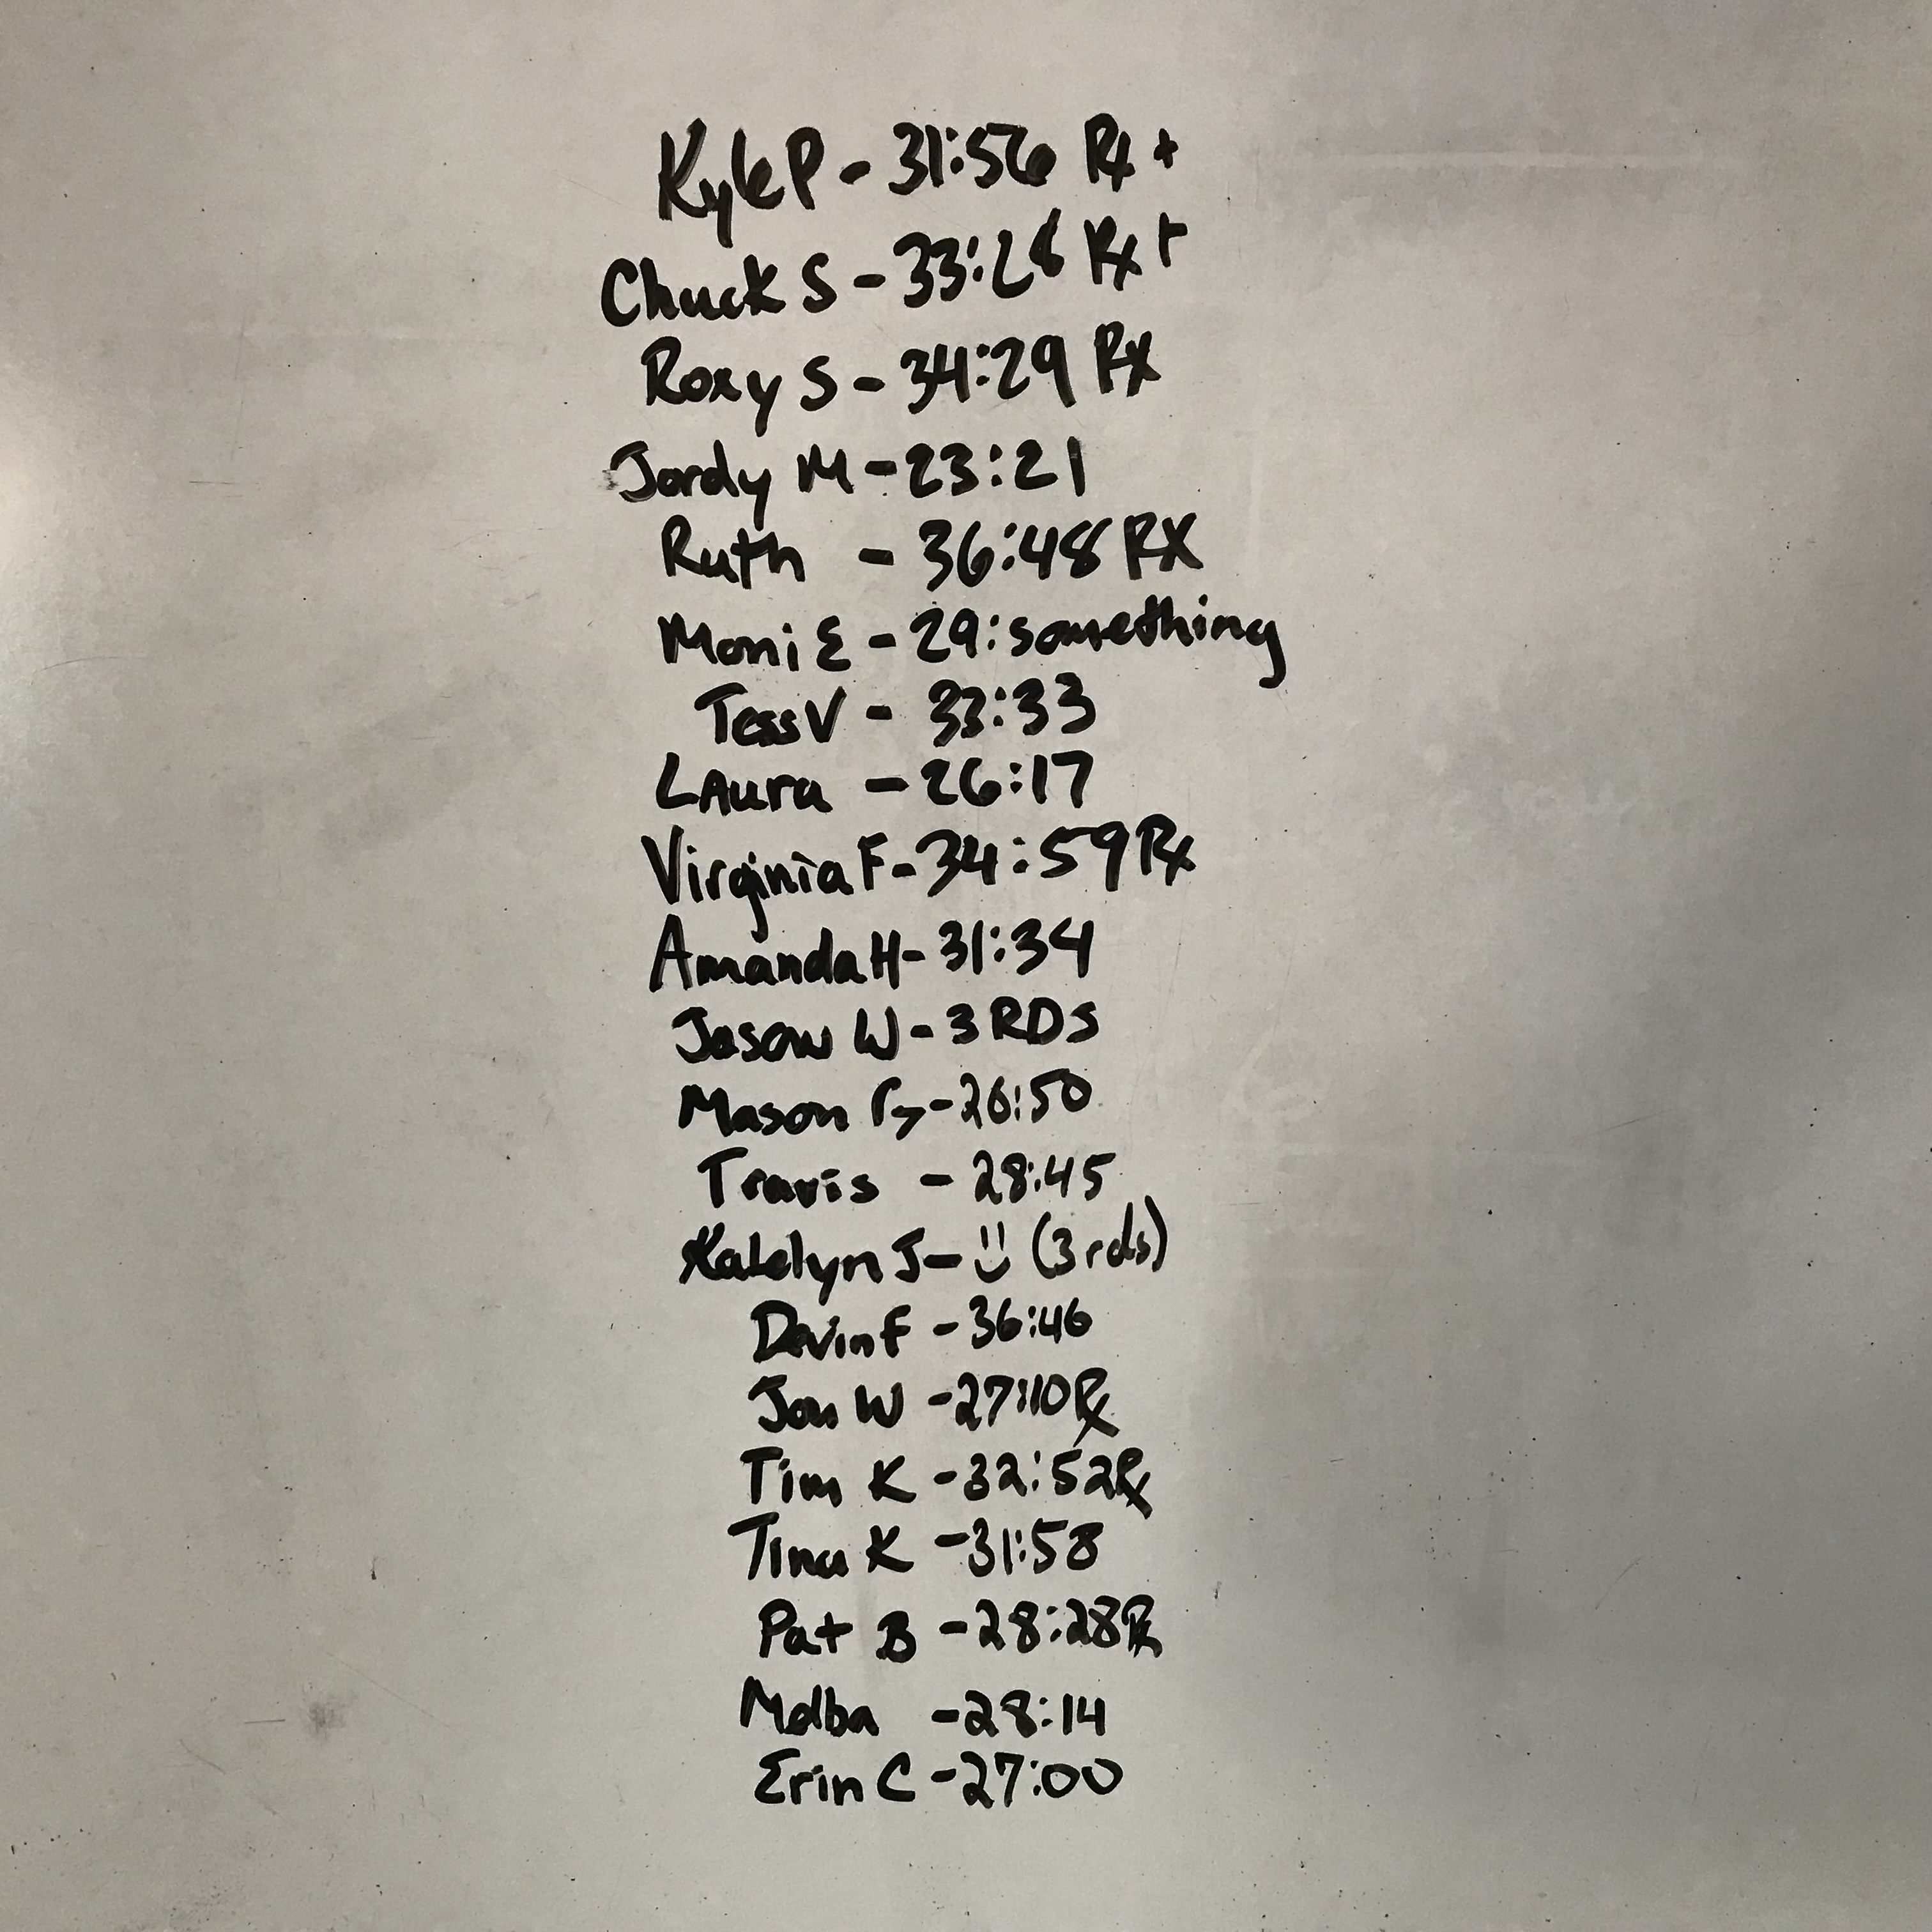 Kyle P - 31:56 Rx +
Chuck S - 33:26 Rx +
Roxy S - 34:29 Rx
Jordy M - 23:21
Ruth - 36:48 RX
Moni E - 29:something
Tess V - 33:33
LAura - 26:17
Virginia F - 34:59 Rx
Amanda H - 31:34
Jason W - 3 RDS
Mason G - 26:50
Travis - 28:45
Katelyn J - (3rds)
Devin F - 36:46
Jon W - 27:10 Rx
Tim K - 32:52 Rx
Tina K - 31:58
Pat B - 28:28 Rx
Melba - 28:14
Erin C - 27:00